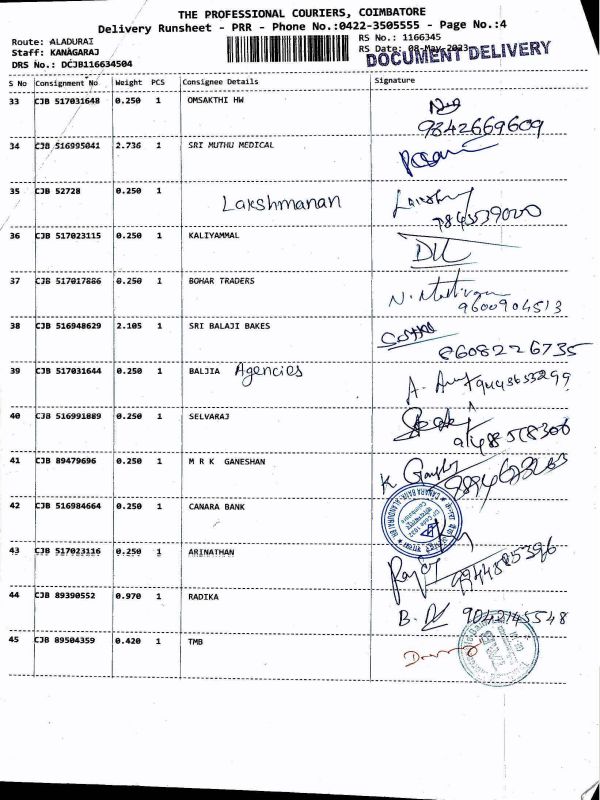 THE PROFESSIONAL COURIERS, COIMBATORE
Delivery Runsheet - PRR - Phone No.:0422-3505555 - Page No.:4
Route: ALADURAI RS No.: 1166345
Staff: KANAGARAJ RS Date: 08-May-2023
DRS No.: DCJB116634504 DOCUMENT DELIVERY
S No Consignment No Weight PCS Consignee Details Signature
33 CJB 517031648 0.250 1 OMSAKTHI HW
9842669609
34 CJB 516995041 2.736 1 SRI MUTHU MEDICAL
35 CJB 52728 0.250 1 Lakshmanan
7845539020
36 CJB 517023115 0.250 1 KALIYAMMAL
37 CJB 517017886 0.250 1 BOHAR TRADERS
9600904513
38 CJB 516948629 2.105 1 SRI BALAJI BAKES
8608226735
39 CJB 517031644 0.250 1 BALJIA Agencies
40 CJB 516991889 0.250 1 SELVARAJ
41 CJB 89479696 0.250 1 M R K GANESHAN
42 CJB 516984664 0.250 1 CANARA BANK
43 CJB 517023116 0.250 1 ARINATHAN
9944885396
44 CJB 89390552 0.970 1 RADIKA
9042145548
45 CJB 89504359 0.420 1 TMB